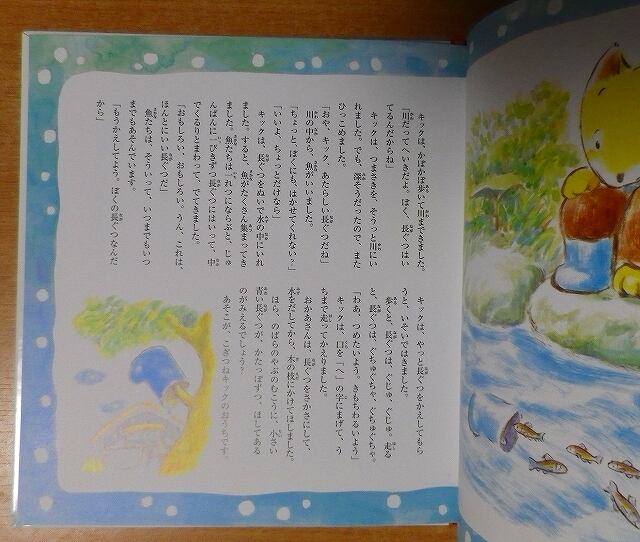 キックは、かぽかぽ歩いて川まできました。
「川だってへいきだよ。ぼく、長ぐつはい
てるんだからね」
キックは、つまさきを、そうっと川にい
れました。でも、深そうだったので、また
ひっこめました。
「おや、キック、あたらしい長ぐつだね」
川の中から、魚がいいました。
「ちょっと、ぼくにも、はかせてくれない?」
「いいよ、ちょっとだけなら」
キックは、長ぐつをぬいで水の中にいれ
ました。すると、魚がたくさん集まってき
ました。魚たちは一れつにならぶと、じゅ
んばんに一ぴきずつ長ぐつにはいって、中
でくるりとまわって、でてきました。
「おもしろい、おもしろい。うん、これは、
ほんとにいい長ぐつだ」
魚たちは、そういって、いつまでもいつ
までもあそんでいます。
「もうかえしてよう。ぼくの長ぐつなんだ
から」
キックは、やっと長ぐつをかえしてもら
うと、いそいではきました。
歩くと、長ぐつは、ぐじゅ、ぐじゅ。走る
と、長ぐつは、ぐちゅぐちゃ、ぐちゅぐちゃ。
「わあ、つめたいよう。きもちわるいよう」
キックは、口を「へ」の字にまげて、う
ちまで走ってかえりました。
おかあさんは、長ぐつをさかさにして、
水をだしてから、木の枝にかけてほしました。
ほら、のばらのやぶのむこうに、小さい
青い長ぐつが、かたっぽずつ、ほしてある
のがみえるでしょう?
あそこが、こぎつねキックのおうちです。